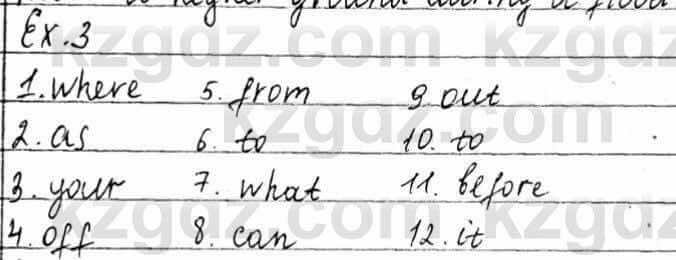 to higher ground during a flood
Ex. 3
1. where 5. from 9. out
2. as 6. to 10. to
3. your 7. what 11. before
4. off 8. can 12. it
kzgdz.com